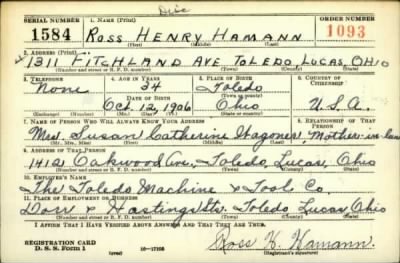 Disc
SERIAL NUMBER 1. NAME (Print) ORDER NUMBER
1584 ROSS HENRY HAMANN 1093
(First) (Middle) (Last)
2. ADDRESS (Print)
1311 FITCHLAND AVE TOLEDO, LUCAS, OHIO
(Number and street or R. F. D. number) (Town) (County) (State)
3. TELEPHONE 4. AGE IN YEARS 5. PLACE OF BIRTH 6. COUNTRY OF CITIZENSHIP
None 34 Toledo
DATE OF BIRTH (Town or county)
Oct. 12, 1906 Ohio U.S.A.
(Exchange) (Number) (Mo.) (Day) (Yr.) (State or country)
7. NAME OF PERSON WHO WILL ALWAYS KNOW YOUR ADDRESS 8. RELATIONSHIP OF THAT PERSON
Mrs. Susan Catherine Wagoner, Mother-in-law
(Mr., Mrs., Miss) (First) (Middle) (Last)
9. ADDRESS OF THAT PERSON
Oakwood Ave., Toledo, Lucas, Ohio
(Number and street or R. F. D. number) (Town) (County) (State)
10. EMPLOYER'S NAME
The Toledo Machine & Tool Co.
11. PLACE OF EMPLOYMENT OR BUSINESS
Dorr & Hastings Sts. Toledo Lucas Ohio
(Number and street or R. F. D. number) (Town) (County) (State)
I AFFIRM THAT I HAVE VERIFIED ABOVE ANSWERS AND THAT THEY ARE TRUE.
REGISTRATION CARD
D. S. S. Form 1 16-17105 Ross H. Hamann.
(Registrant's signature)